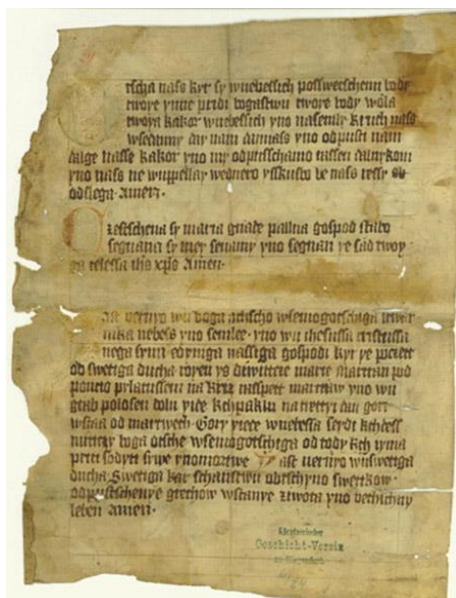 Otscha nass kyr sy wnebessich posswetschenu body
twoye ymme pridi bogastwu twoye body wola
twoya kakor wnebessich yno nasemly kruch nass
wsedanny day nam dannass yno odpusti nam
dalge nasse kakor yno my odpusschamo nassen dalnykom
yno nass ne wuppellay wednero yskusbo le nass ressy
odslega. Amen.
Czestschena sy maria gnade pallna gospod stabo
segnana sy mey senamy yno segnan ye sad twoy
ga telessa ihs xps Amen.
Jast veruyo wu boga otscho wsemogotschiga stwar
nika nebess yno semlee. yno wu ihesussa cristussa
nega synu edyniga nassiga gospodi kyr ye poczett
od swetiga ducha royen ys dewittcie marie martran pod
poncio pylatussem na kriz raspett martraw yno wu
grab polosen dolu yide kchpaklu natrettyi dan gori
wstaa od martwech. Gory yiede wnebessa sedi kchdess
nuttcy boga otsche wsemogotschiga od tody kch yma
priti sodytt sywe ynomortwe Yast veruyo wuswetiga
ducha Swetiga karschanstwu obtschyno swettkow
odpustschenye grechow wstanye zywota yno vetschny
leben Amen.
Geschicht-Verein